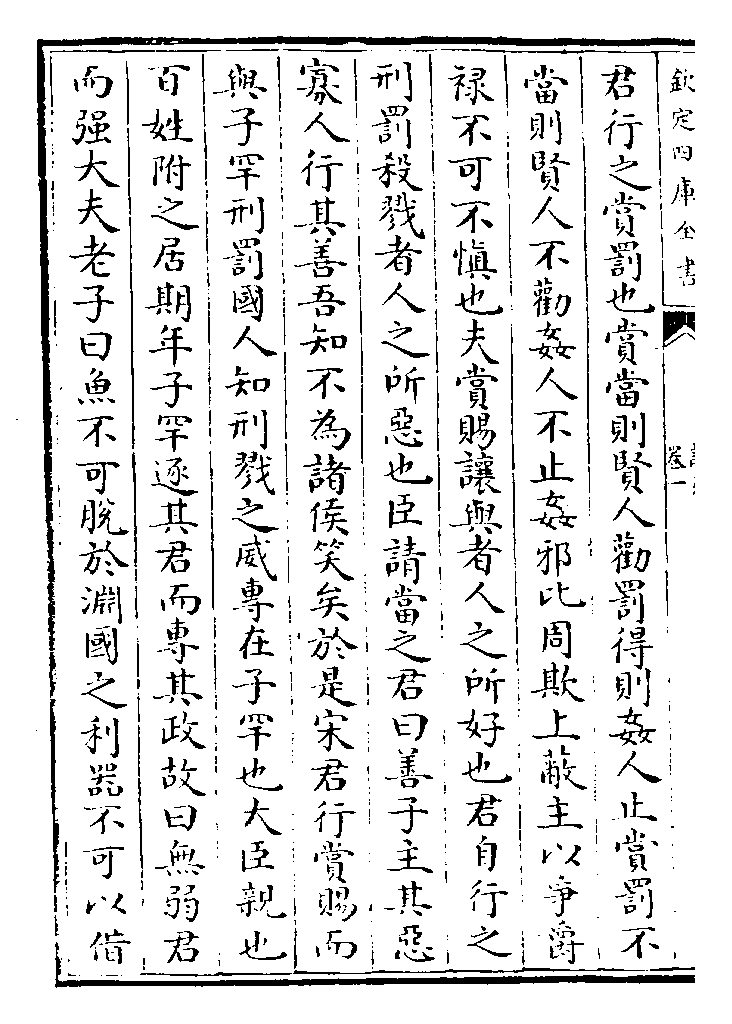 欽定四庫全書
卷一
君行之賞罰也賞當則賢人勸罰得則姦人止賞罰不
當則賢人不勸姦人不止姦邪比周欺上蔽主以爭爵
禄不可不慎也夫賞賜讓與者人之所好也君自行之
刑罰殺戮者人之所惡也臣請當之君曰善子主其惡
寡人行其善吾知不為諸侯笑矣於是宋君行賞賜而
與子罕刑罰國人知刑戮之威專在子罕也大臣親也
百姓附之居期年子罕逐其君而專其政故曰無弱君
而强大夫老子曰魚不可脫於淵國之利器不可以借